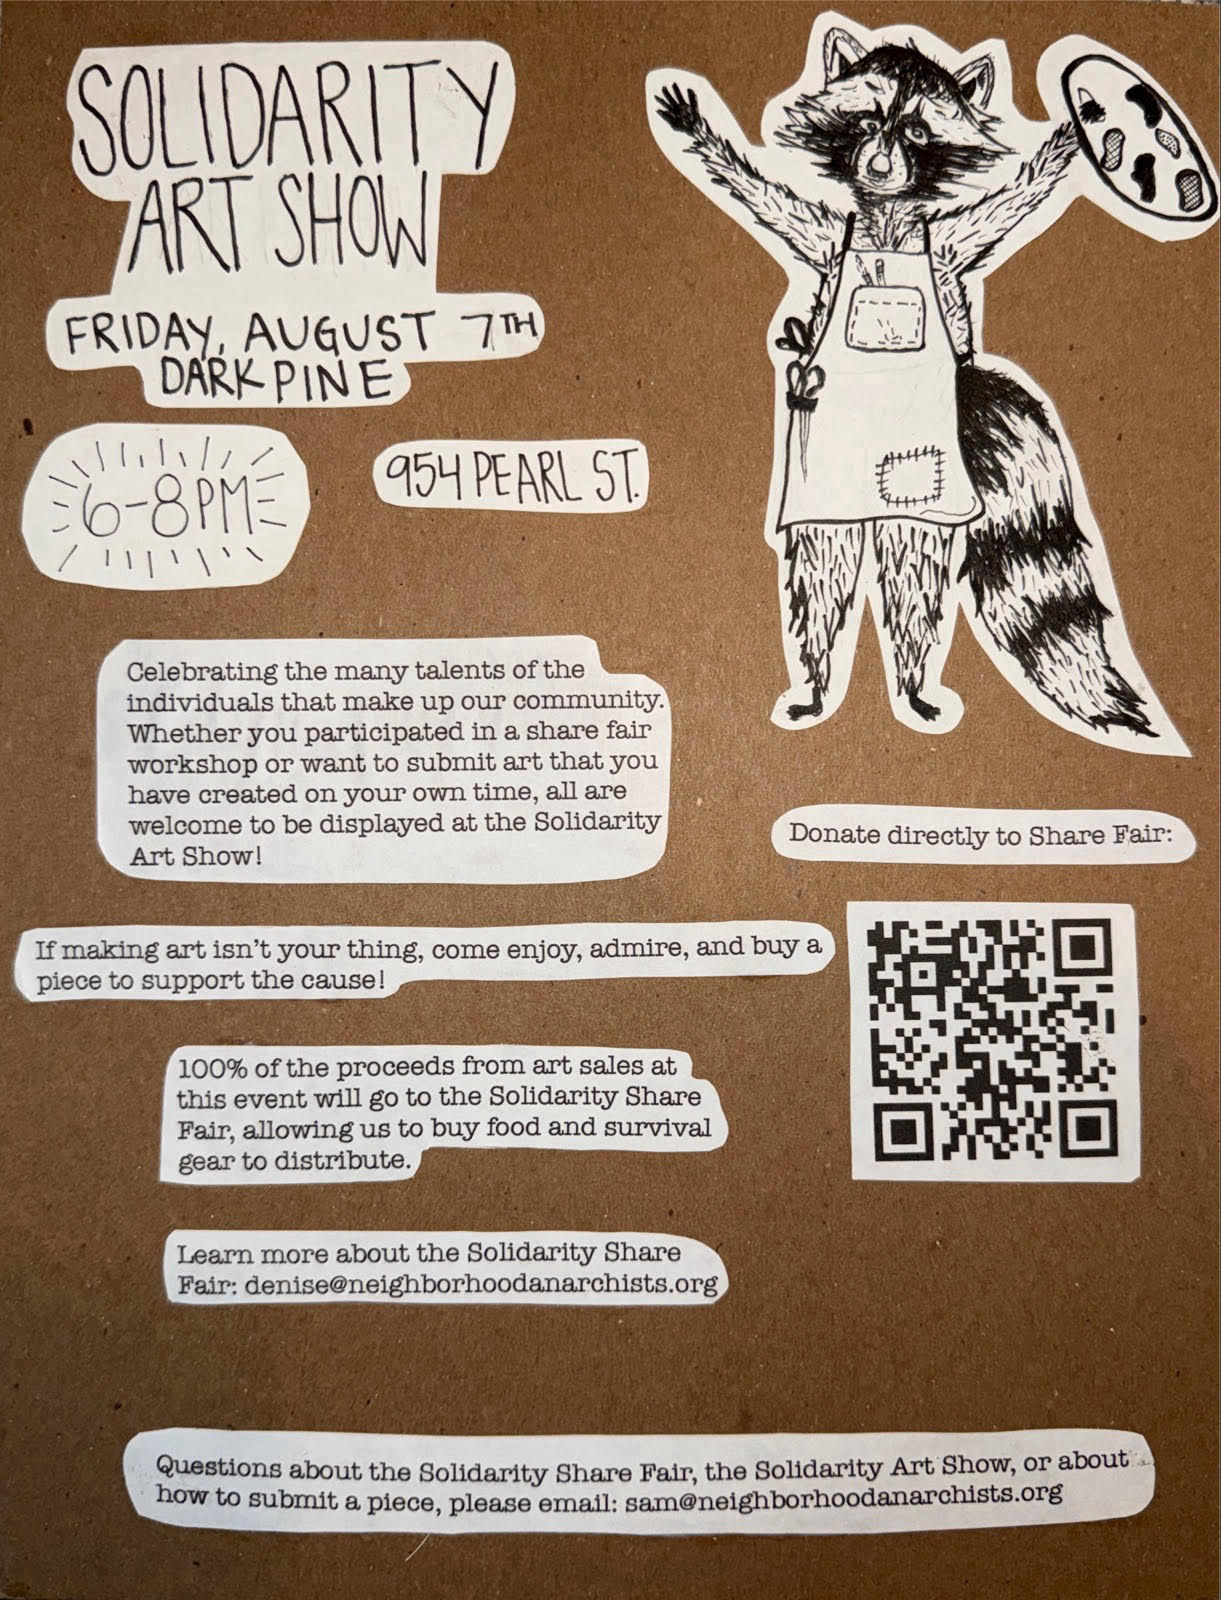 SOLIDARITY
ART SHOW
FRIDAY, AUGUST 7TH
DARK PINE
6-8PM
954 PEARL ST.
Celebrating the many talents of the
individuals that make up our community.
Whether you participated in a share fair
workshop or want to submit art that you
have created on your own time, all are
welcome to be displayed at the Solidarity
Art Show!
Donate directly to Share Fair:
If making art isn't your thing, come enjoy, admire, and buy a
piece to support the cause!
100% of the proceeds from art sales at
this event will go to the Solidarity Share
Fair, allowing us to buy food and survival
gear to distribute.
Learn more about the Solidarity Share
Fair: denise@neighborhoodanarchists.org
Questions about the Solidarity Share Fair, the Solidarity Art Show, or about
how to submit a piece, please email: sam@neighborhoodanarchists.org